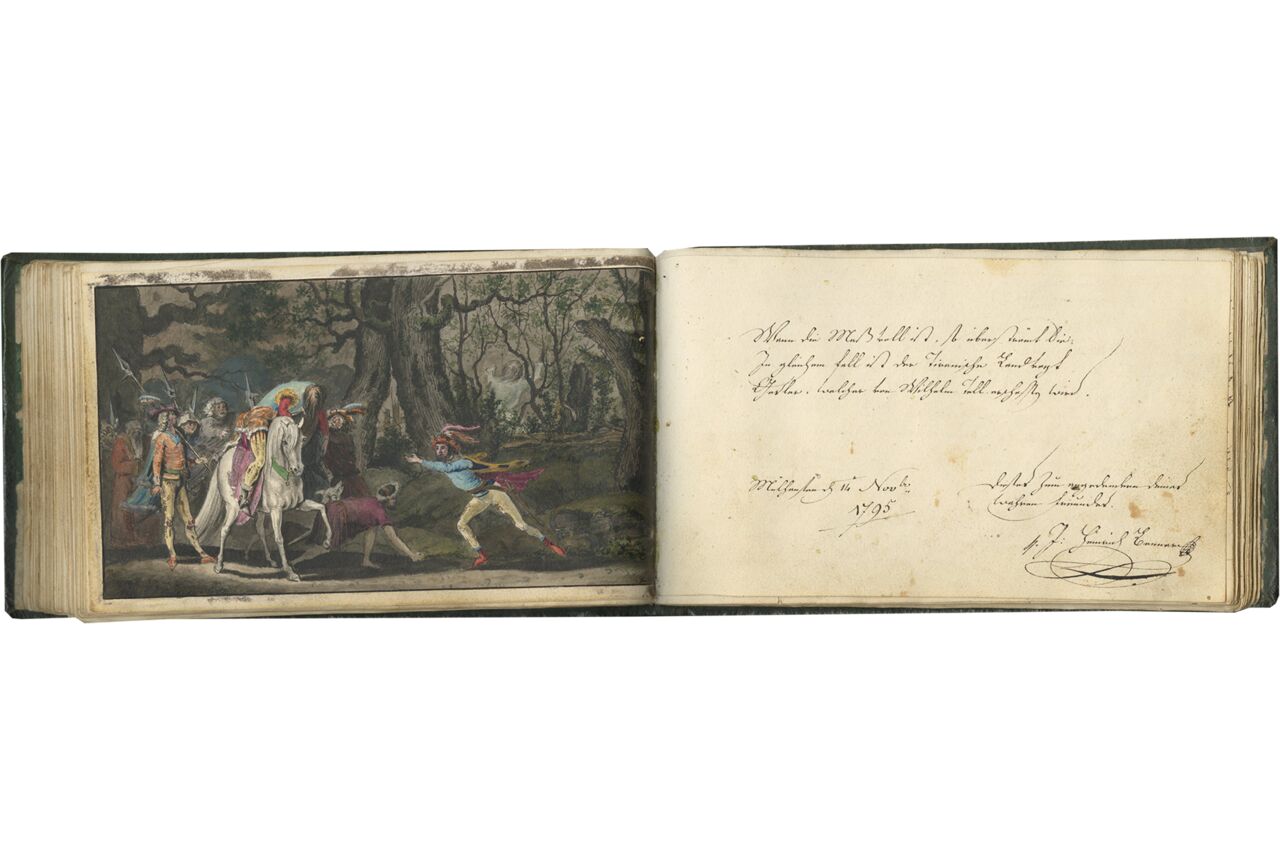 Wenn die Maß voll ist, so überströmt Sie;
In gleichem fall ist der Tiranische Landvogt
welcher von Wilhelm Tell erschoßen wird.
Mülhausen d 14 Novbr
1795
Dieses zum angedencken deines
wahren freundes.
J: Heinrich